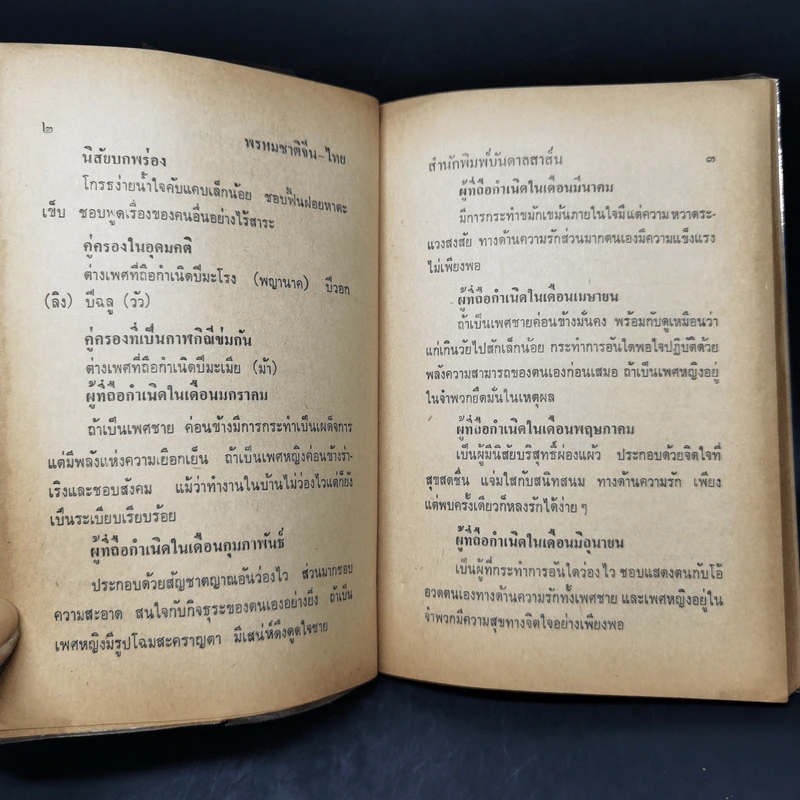 ๒
พรหมชาติจีน-ไทย
นิสัยบกพร่อง
โกรธง่ายน้ำใจคับแคบเล็กน้อย ชอบฟื้นฝอยหาตะ
เข็บ ชอบพูดเรื่องของคนอื่นอย่างไร้สาระ
คู่ครองในอุดมคติ
ต่างเพศที่ถือกำเนิดปีมะโรง (พญานาค) ปีวอก
(ลิง) ปีฉลู (วัว)
คู่ครองที่เป็นกาฬกิณีข่มกัน
ต่างเพศที่ถือกำเนิดปีมะเมีย (ม้า)
ผู้ที่ถือกำเนิดในเดือนมกราคม
ถ้าเป็นเพศชาย ค่อนข้างมีการกระทำเป็นเผด็จการ
แต่มีพลังแห่งความเยือกเย็น ถ้าเป็นเพศหญิงค่อนข้างร่า-
เริงและชอบสังคม แม้ว่าทำงานในบ้านไม่ว่องไวแต่ก็ยัง
เป็นระเบียบเรียบร้อย
ผู้ที่ถือกำเนิดในเดือนกุมภาพันธ์
ประกอบด้วยสัญชาตญาณอันว่องไว ส่วนมากชอบ
ความสะอาด สนใจกับกิจธุระของตนเองอย่างยิ่ง ถ้าเป็น
เพศหญิงมีรูปโฉมสะคราญตา มีเสน่ห์ดึงดูดใจชาย
สำนักพิมพ์บันดาลสาส์น
๓
ผู้ที่ถือกำเนิดในเดือนมีนาคม
มีการกระทำขมักเขม้นภายในใจมีแต่ความหวาดระ-
แวงสงสัย ทางด้านความรักส่วนมากตนเองมีความแข็งแรง
ไม่เพียงพอ
ผู้ที่ถือกำเนิดในเดือนเมษายน
ถ้าเป็นเพศชายค่อนข้างมั่นคง พร้อมกับดูเหมือนว่า
แก่เกินวัยไปสักเล็กน้อย กระทำการอันใดพอใจปฏิบัติด้วย
พลังความสามารถของตนเองก่อนเสมอ ถ้าเป็นเพศหญิงอยู่
ในจำพวกยึดมั่นในเหตุผล
ผู้ที่ถือกำเนิดในเดือนพฤษภาคม
เป็นผู้มีนิสัยบริสุทธิ์ผ่องแผ้ว ประกอบด้วยจิตใจที่
สุขสดชื่น แจ่มใสกับสนิทสนม ทางด้านความรัก เพียง
แต่พบครั้งเดียวก็หลงรักได้ง่าย ๆ
ผู้ที่ถือกำเนิดในเดือนมิถุนายน
เป็นผู้ที่กระทำการอันใดว่องไว ชอบแสดงตนกับโอ้
อวดตนเองทางด้านความรักทั้งเพศชาย และเพศหญิงอยู่ใน
จำพวกมีความสุขทางจิตใจอย่างเพียงพอ